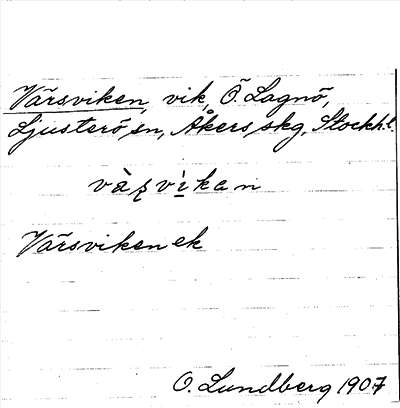 Värsviken, vik, Ö. Lagnö,
Ljusterö sn, Åkers skg, Stockh.l.
và̀ʂvìkan
Värsviken ek
O. Lundberg 1907